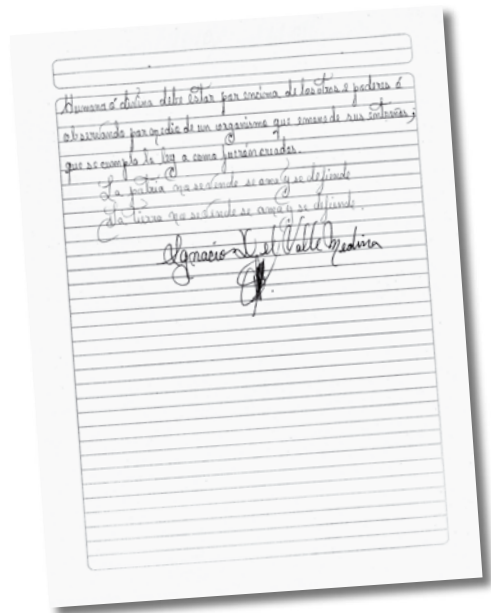 Humana ó divina debe estar por encima de los otros 2 poderes ó
observando por medio de un organismo que emane de sus entrañas,
que se cumpla la ley a como fueron creados.
La patria no se vende se ama y se defiende
La tierra no se vende se ama y se defiende.
Ignacio Del Valle Medina